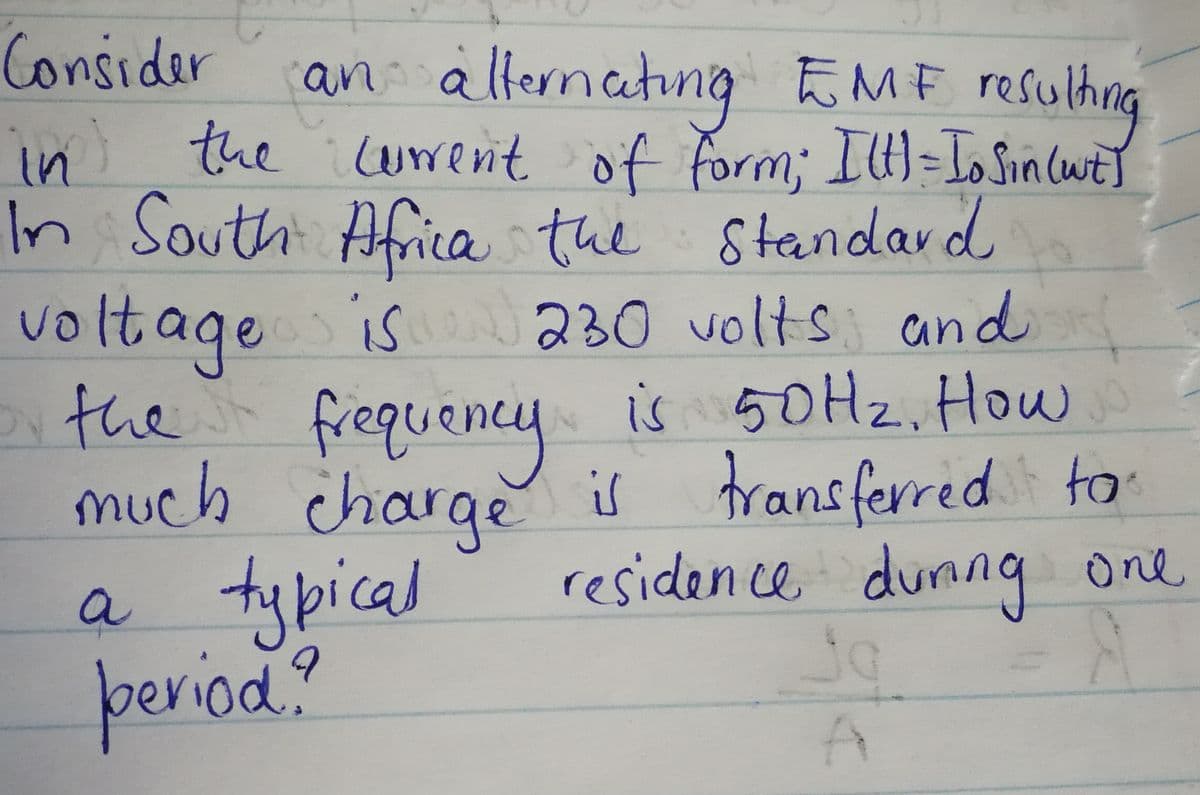 Consider an alternating EMF resulting
in the current of form; I(t)=I₀Sin(wt)
In South Africa the standard
voltage is 230 volts and
the frequency is 50Hz. How
much charge is transferred to
a typical residence during one
period?